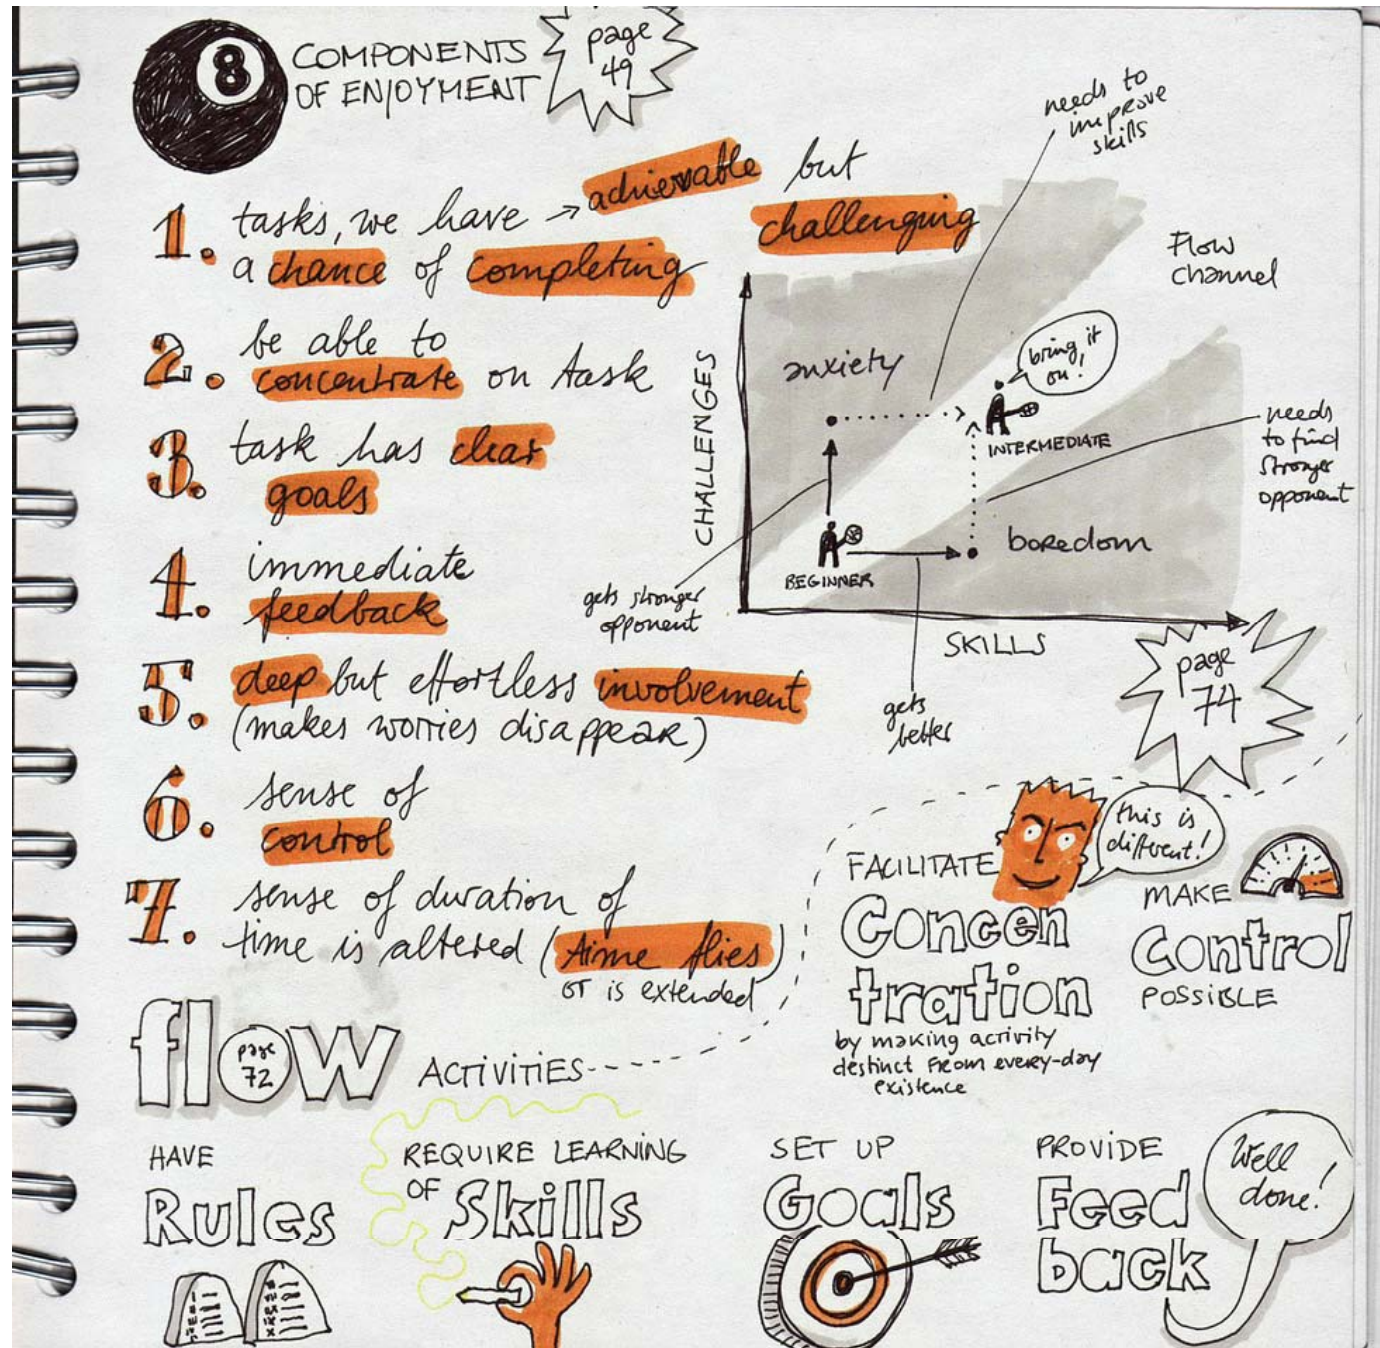 8
COMPONENTS
OF ENJOYMENT
page
49
1. tasks, we have → achievable but
challenging
a chance of completing
2. be able to
concentrate on task
3. task has clear
goals
4. immediate
feedback
5. deep but effortless involvement
(makes worries disappear)
6. sense of
control
7. sense of duration of
time is altered (time flies)
or is extended
needs to
improve
skills
Flow
channel
CHALLENGES
anxiety
bring it
on!
INTERMEDIATE
needs
to find
stronger
opponent
boredom
BEGINNER
gets stronger
opponent
SKILLS
gets
better
page
74
flow
page
72
ACTIVITIES
FACILITATE
Concen
tration
by making activity
destinct from every-day
existence
this is
different!
MAKE
Control
POSSIBLE
HAVE
Rules
REQUIRE LEARNING
OF Skills
SET UP
Goals
PROVIDE
Feed
back
Well
done!